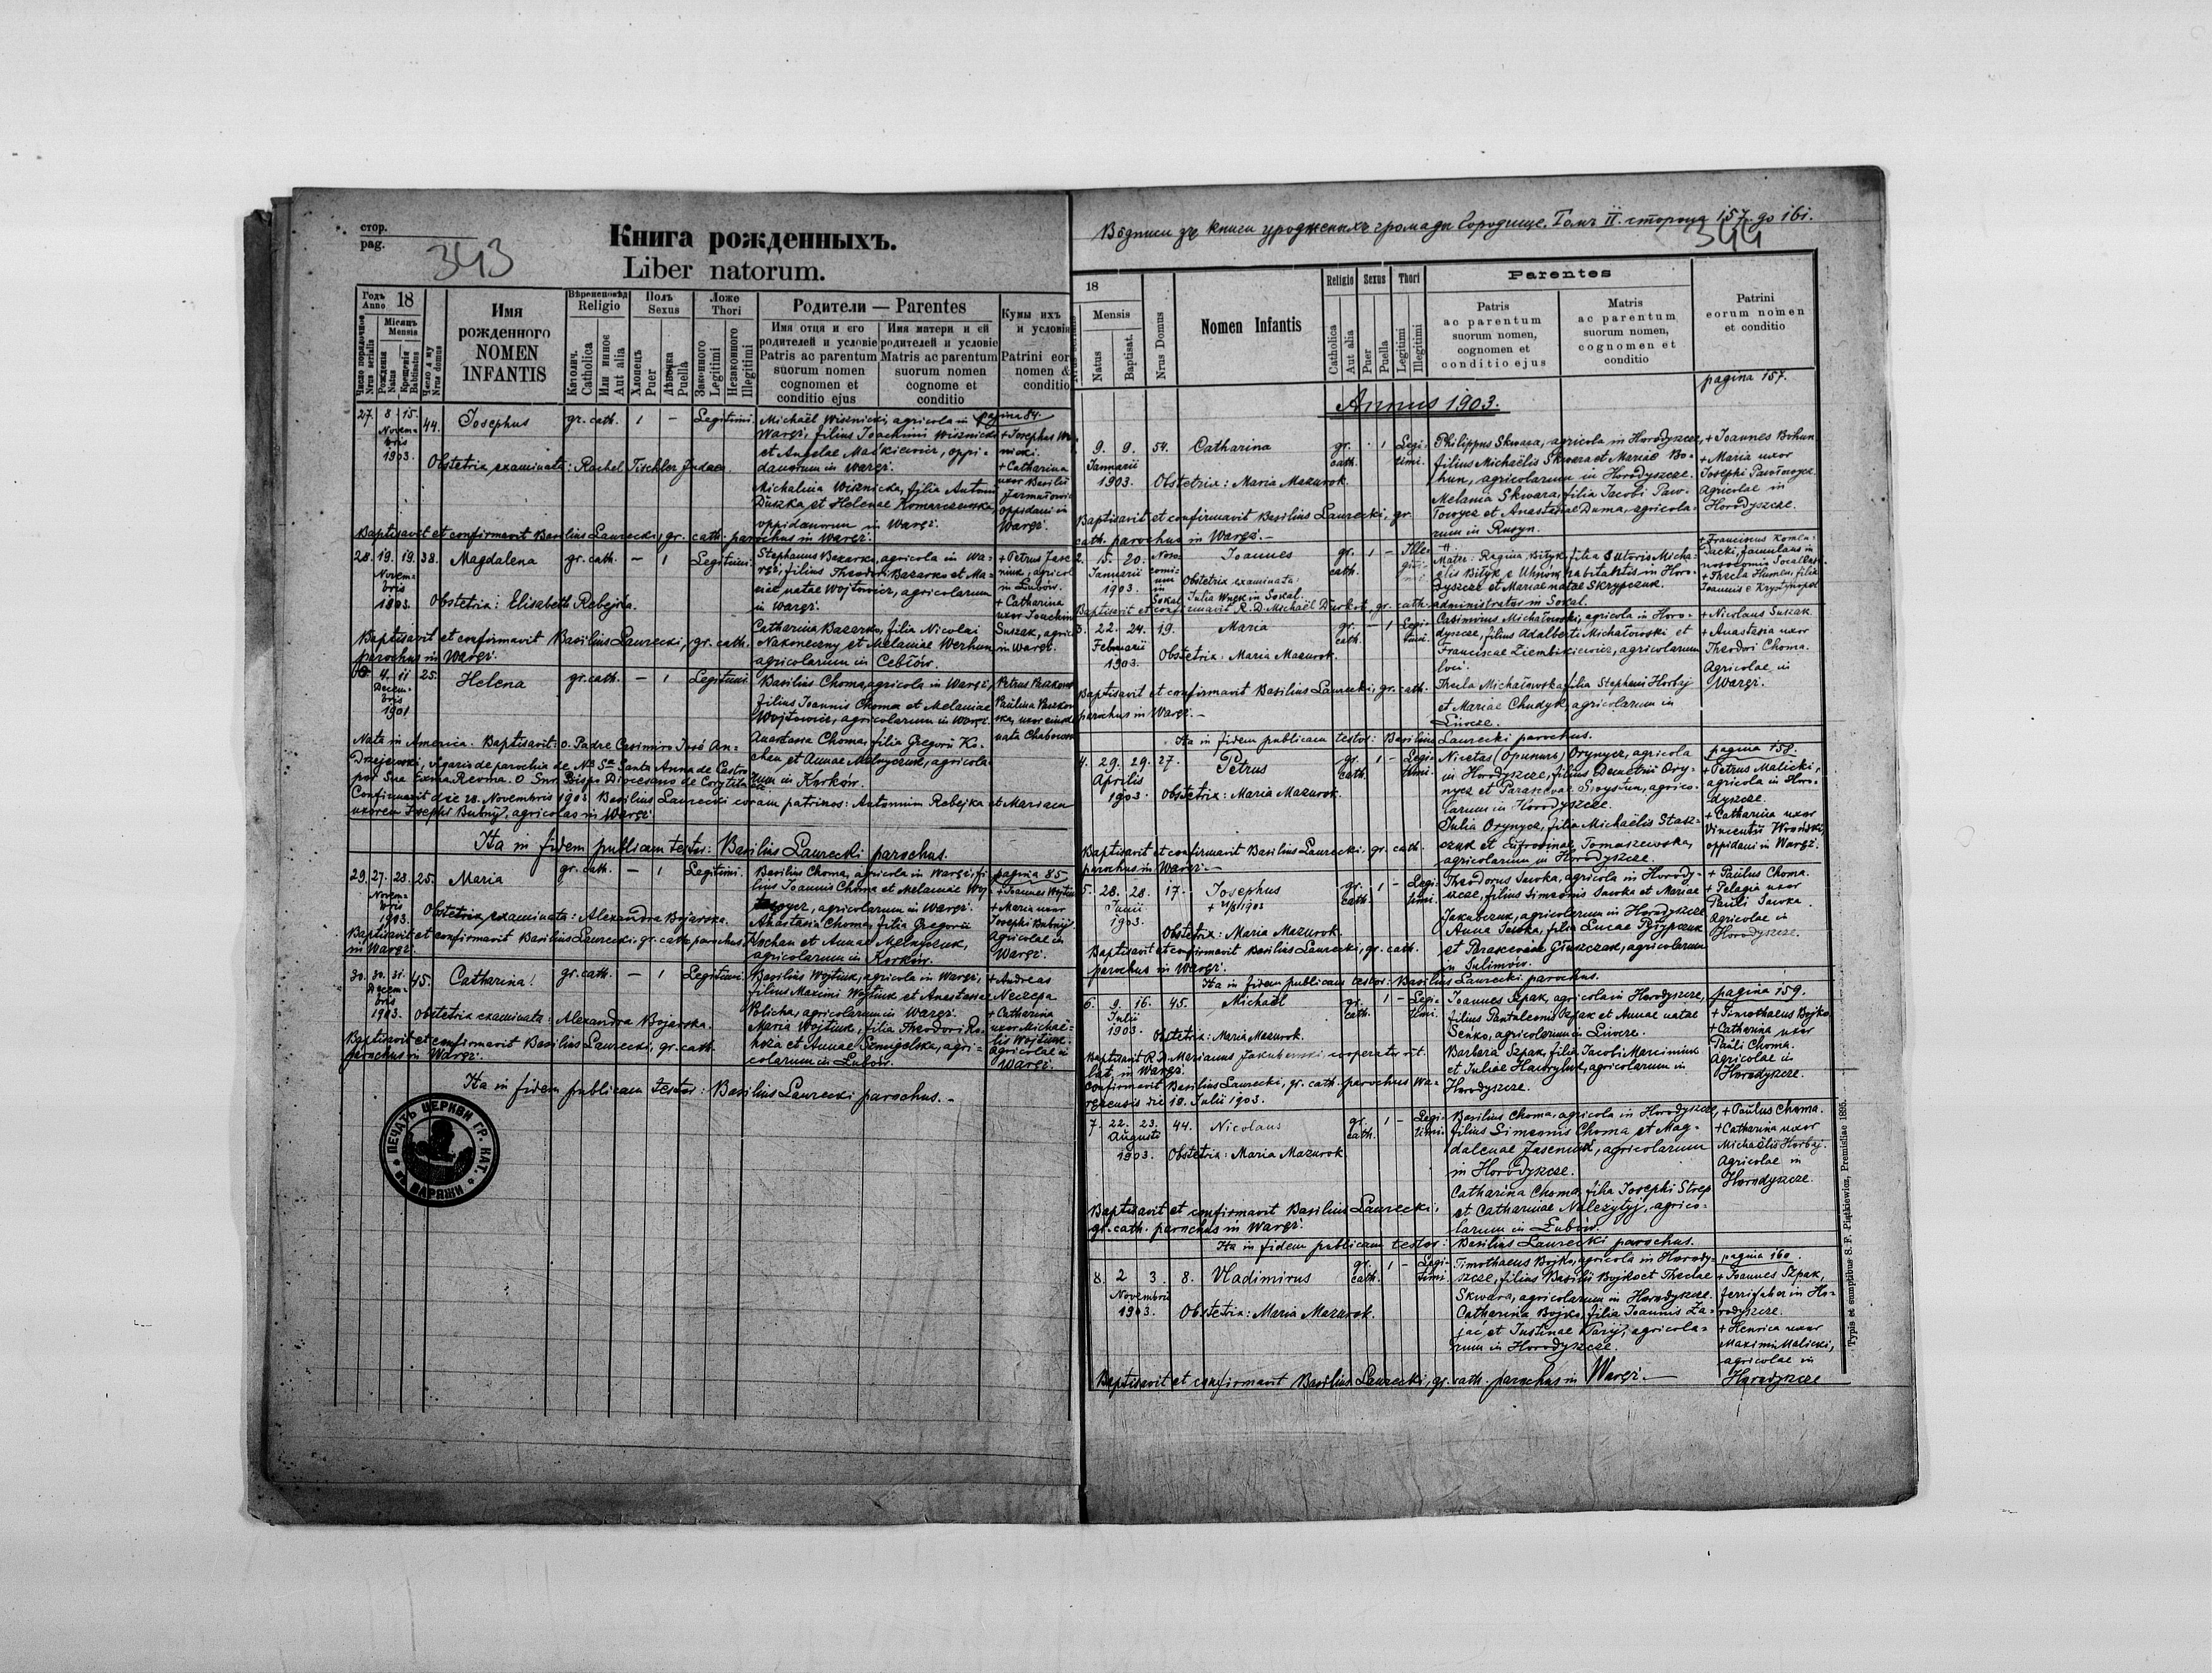 стор.
pag.
343
Книга рожденныхъ.
Liber natorum.
Годъ Anno 18
Число порядковое
Nrus serialis
Місяцъ
Mensis
Рожденія
Natus
Крещенія
Babtisatus
Число дому
Nrus domus
Имя
рожденного
NOMEN
INFANTIS
Вѣроисповѣд
Religio
Католич.
Catholica
Или инное
Aut alia
Полъ
Sexus
Хлопецъ
Puer
Дѣвочка
Puella
Ложе
Thori
Законного
Legitimi
Незаконного
Illegitimi
Родители — Parentes
Имя отця и его
родителей и условіе
Patris ac parentum
suorum nomen
cognomen et
conditio ejus
Имя матери и ей
родителей и условіе
Matris ac parentum
suorum nomen
cognome et
conditio
Кумы ихъ
и условія
Patrini eor
nomen &
conditio
pagina 84.
27. 8 15. 44. Josephus gr. cath. 1 — Legitimi.
Novembris
1903.
Michaël Wiśnicki, agricola in
Waręż, filius Joachimi Wiśnicki
et Angelae Maśkiewicz, oppi-
danorum in Waręż.
Michalina Wiśnicka, filia Antoni
Duszka et Helenae Komarczewska
oppidanorum in Waręż.
+ Catharina
uxor Basilii
oppidani in
Waręż.
Obstetrix examinata: Rachel Tischler Judaea.
Baptisavit et confirmavit Basilius Laurecki, gr. cath. parochus in Waręż.
28. 19. 19. 38. Magdalena gr. cath. — 1 Legitimi.
Novembris
1903.
Stephanus Bazarko, agricola in Wa-
ręż, filius Theodori Bazarko et Ma-
riae natae Wojtowicz, agricolarum
in Waręż.
Catharina Bazarko, filia Nicolai
Nakoneczny et Melaniae Werhun
agricolarum in Cebłów.
in Łubów.
+ Catharina
uxor Joachim
Suszak, agric
in Waręż.
Obstetrix: Elisabeth Rebejka.
Baptisavit et confirmavit Basilius Laurecki, gr. cath.
parochus in Waręż.
4. 11 25. Helena gr. cath. — 1 Legitimi
Decembris
1901
Basilius Choma, agricola in Waręż,
filius Joannis Choma et Melaniae
Wojtowicz, agricolarum in Waręż.
Anastasia Choma, filia Gregorii Ko-
chan et Annae Melnyczuk, agricola-
rum in Korków.
Nata in America. Baptisavit: o. Padre Casimiro José An-
drzejewski, vigario de parochia de Na Sa Santa Anna de Castro
por Sua Exma Revma. O Snr. Bispo Diocesano de Corytiba
Confirmavit die 28. Novembris 1903. Basilius Laurecki coram patrinos: Antonium Rebejka et Mariam
uxorem Josephi Bubnij, agricolas in Waręż.
Ita in fidem publicam testor: Basilius Laurecki parochus.
pagina 85
29. 27. 28. 25. Maria gr. cath. — 1 Legitimi.
Novembris
1903.
Basilius Choma, agricola in Waręż, fi-
lius Joannis Choma et Melaniae Woj-
towycz, agricolarum in Waręż.
Anastasia Choma, filia Gregorii
Kochan et Annae Melnyczuk,
agricolarum in Korków.
+ Maria uxor
Josephi Bubnij
Agricolae in
Waręż.
Obstetrix examinata: Alexandra Bojarska.
Baptisavit et confirmavit Basilius Laurecki, gr. cath. parochus
in Waręż.
30. 30. 31. 45. Catharina! gr. cath. — 1 Legitimi.
Decembris
1903.
Basilius Wojtiuk, agricola in Waręż,
filius Maximi Wojtiuk et Anastasiae
Policha, agricolarum in Waręż.
Maria Wojtiuk, filia Theodori Ro-
hoza et Annae Szmigelska, agri-
colarum in Łubów.
+ Andreas
Neczepa
+ Catharina
uxor Michaë-
lis Wojtiuk.
Agricolae in
Waręż.
Obstetrix examinata: Alexandra Bojarska.
Baptisavit et confirmavit Basilius Laurecki, gr. cath.
parochus in Waręż.
Ita in fidem publicam testor: Basilius Laurecki parochus. –
ПЕЧАТЬ ЦЕРКВИ ГР. КАТ. ВЪ ВАРЯЖИ
Водписи зъ книги уродженыхъ громады Городище. Томъ II. сторона 157. до 161.
344
18
Mensis
Natus
Baptisat.
Nrus Domus
Nomen Infantis
Religio
Catholica
Aut alia
Sexus
Puer
Puella
Thori
Legitimi
Illegitimi
Parentes
Patris
ac parentum
suorum nomen,
cognomen et
conditio ejus
Matris
ac parentum
suorum nomen,
cognomen et
conditio
Patrini
eorum nomen
et conditio
Annus 1903.
pagina 157.
9. 9. 54. Catharina gr. cath. · 1 Legitimi.
Januarii
1903.
Obstetrix: Maria Mazurok
Philippus Skwara, agricola in Horodyszcze,
filius Michaëlis Skwara et Mariae Bo-
hun, agricolarum in Horodyszcze.
Melania Skwara, filia Jacobi Paw-
łowycz et Anastasiae Duma, agricola-
rum in Rusyn.
+ Joannes Bohun
+ Maria uxor
Josephi Pawłowycz
Agricolae in
Horodyszcze.
Baptisavit et confirmavit Basilius Laurecki, gr.
cath. parochus in Waręż. –
2. 15. 20. Nosocomium in Sokal Joannes gr. cath. 1 – Illegitimi
Januarii
1903.
Obstetrix examinata
Julia Wujek in Sokal.
Mater: Regina Bityk, filia sutoris Micha-
ëlis Bityk e Uhnów, habitantis in Horo-
dyszcze et Mariae natae Skrypczuk.
+ Franciscus Komla-
famulans in
nosocomio Socaliensi
+ Thecla Humen, filia
Joannis e Krystynopol
Baptisavit et confirmavit R. D. Michaël Durkot, gr. cath. administrator in Sokal.
3. 22. 24. 19. Maria gr. cath. – 1 Legitimi.
Februarii
1903.
Obstetrix: Maria Mazurok.
Casimirus Michałowski, agricola in Horo-
dyszcze, filius Adalberti Michałowski et
Franciscae Ziembikiewicz, agricolarum
loci.
Thecla Michałowska, filia Stephani Horbaj
et Mariae Chudyk, agricolarum in
Liwcze.
+ Nicolaus Suszak.
+ Anastasia uxor
Theodori Choma.
Agricolae in
Waręż.
Baptisavit et confirmavit Basilius Laurecki, gr. cath.
parochus in Waręż. –
Ita in fidem publicam testor: Basilius Laurecki parochus.
pagina 158.
4. 29. 29. 27. Petrus gr. cath. 1 – Legitimi.
Aprilis
1903.
Obstetrix: Maria Mazurok.
Nicetas (Opunurs) Orynycz, agricola
in Horodyszcze, filius Demetrii Ory-
nycz et Parascevae Swystun, agrico-
larum in Horodyszcze.
Julia Orynycz, filia Michaëlis Stasz-
czuk et Eifrosinae Tomaszewska,
agricolarum in Horodyszcze.
+ Petrus Malicki,
agricola in Horo-
dyszcze.
+ Catharina uxor
Vincentii Wroński,
oppidani in Waręż.
Baptisavit et confirmavit Basilius Laurecki, gr. cath.
parochus in Waręż. –
5. 28. 28. 17. Josephus gr. cath. 1 – Legitimi.
Junii
1903.
Obstetrix: Maria Mazurok.
Theodorus Sawka, agricola in Horody-
szcze, filius Simeonis Sawka et Mariae
Jakubczuk, agricolarum in Horodyszcze
Anna Sawka, filia Lucae Pyłypczuk
et Paraksevia Głuszczak, agricolarum
in Sulimów.
+ Paulus Choma.
+ Pelagia uxor
Pauli Sawka.
Agricolae in
Horodyszcze.
Baptisavit et confirmavit Basilius Laurecki, gr. cath.
parochus in Waręż.
Ita in fidem publicam testor: Basilius Laurecki parochus.
pagina 159.
6. 9. 16. 45. Michaël gr. cath. 1 – Legitimi.
Julii
1903.
Obstetrix: Maria Mazurok.
Joannes Szpak, agricola in Horodyszcze,
filius Pantaleonis Szpak et Annae natae
Seńko, agricolarum in Liwcze.
Barbara Szpak, filia Jacobi Marciniuk
et Juliae Hawryluk, agricolarum in
Horodyszcze.
+ Timothaeus Bojko
+ Catharina uxor
Pauli Choma.
Agricolae in
Horodyszcze.
Baptisavit R. D. Marianus Jakubowski, cooperator rit.
lat. in Waręż.
Confirmavit Basilius Laurecki, gr. cath. parochus Wa-
rężensis die 19. Julii 1903.
7. 22. 23. 44. Nicolaus gr. cath. 1 – Legitimi.
Augusti
1903.
Obstetrix: Maria Mazurok.
Basilius Choma, agricola in Horodyszcze,
filius Simeonis Choma et Mag-
dalenae Jaseniuk, agricolarum
in Horodyszcze.
Catharina Choma, filia Josephi Strep
et Catharinae Należytyj, agrico-
larum in Łubów.
+ Paulus Choma.
+ Catharina uxor
Michaëlis Horbaj.
Agricolae in
Horodyszcze.
Baptisavit et confirmavit Basilius Laurecki,
gr. cath. parochus in Waręż.
Ita in fidem publicam testor: Basilius Laurecki parochus.
pagina 160.
8. 2 3. 8. Vladimirus gr. cath. 1 – Legitimi.
Novembris
1903.
Obstetrix: Maria Mazurok.
Timothaeus Bojko, agricola in Horody-
szcze, filius Basilii Bojko et Theclae
Skwara, agricolarum in Horodyszcze.
Catharina Bojko, filia Joannis Za-
jac et Justinae Taryj, agricola-
rum in Horodyszcze.
+ Joannes Szpak,
ferrifaber in Ho-
rodyszcze.
+ Henrica uxor
Maximi Malicki,
agricolae in
Horodyszcze
Baptisavit et confirmavit Basilius Laurecki, gr. cath. parochus in Waręż. –
Typis et sumptibus S. F. Piątkiewicz, Premisliae 1895.